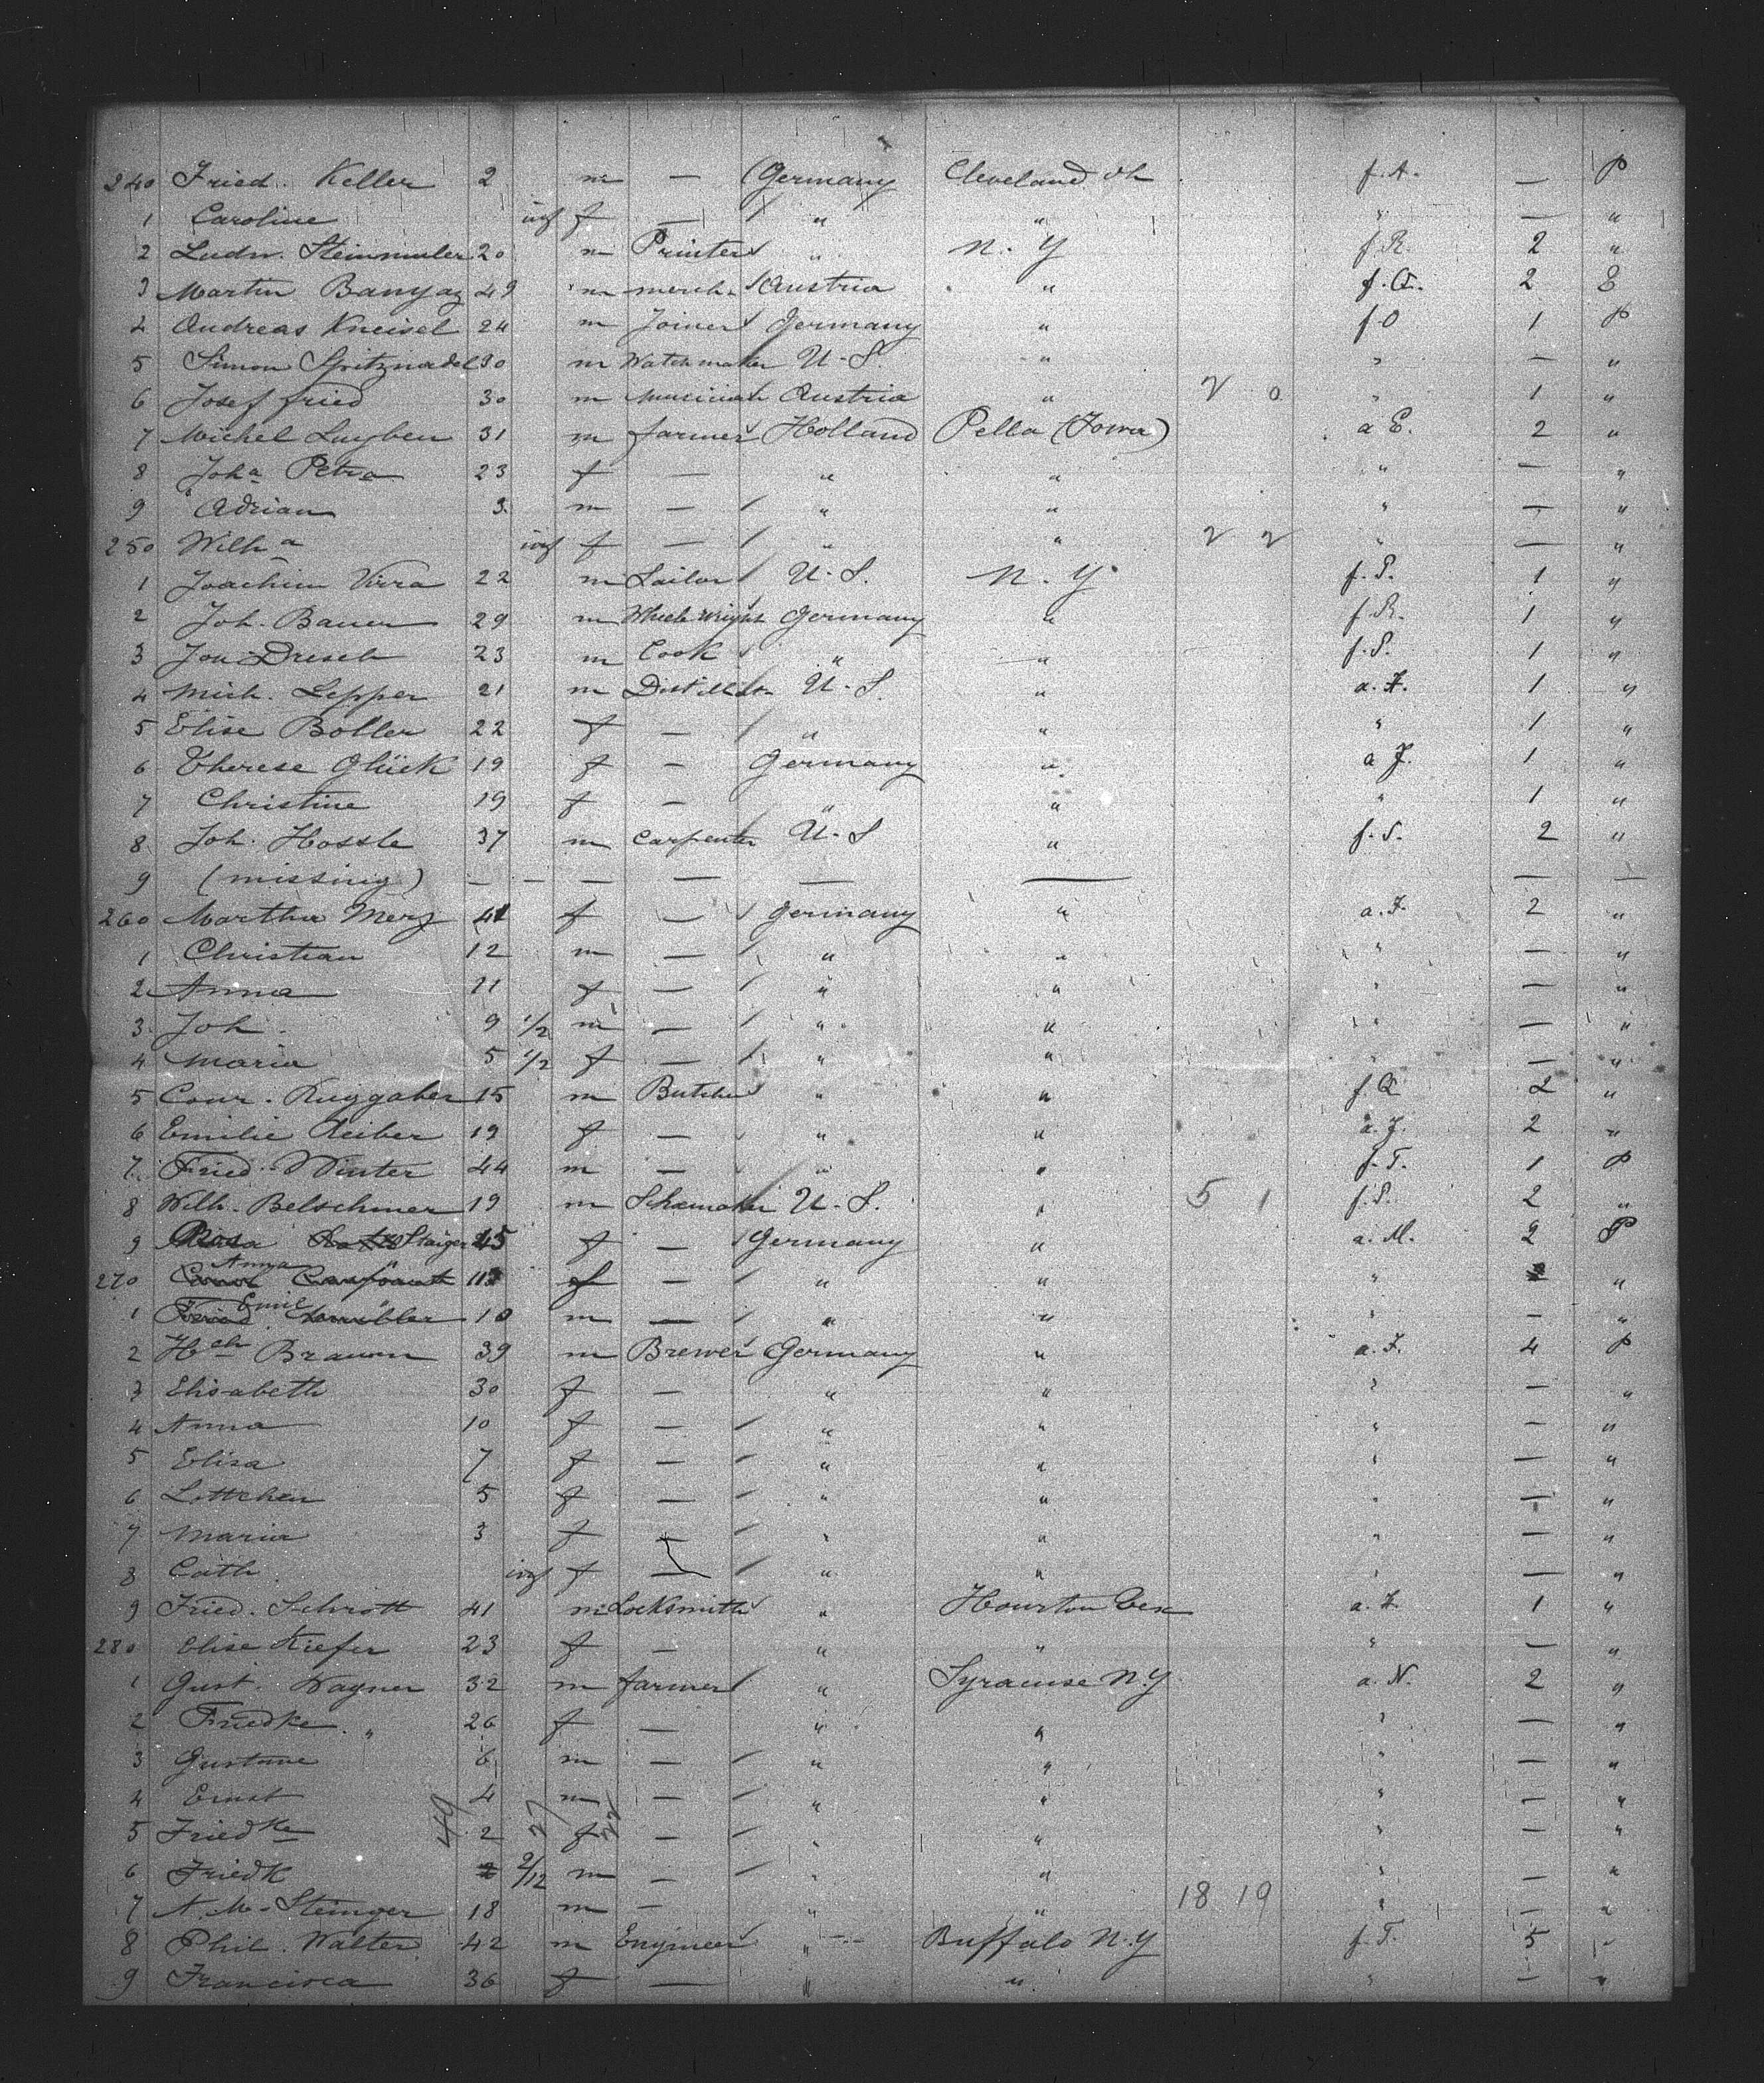 240 Fried. Keller 2 m — Germany Cleveland Oh f. A. — P
1 Caroline inf f — " " " — "
2 Ludw. Steinmuler 20 m Printer " N. Y f. R. 2 "
3 Martin Banyaz 49 m merch. Austria " f. Q. 2 S
4 Andreas Kneisel 24 m Joiner Germany " f O 1 P
5 Simon Spitznadel 30 m Watchmaker U. S. " " — "
6 Josef Fried 30 m Musician Austria " 2 0 " 1 "
7 Michel Luyben 31 m farmer Holland Pella (Iowa) a E. 2 "
8 Joha Petra 23 f — " " " — "
9 Adrian 3 m — " " " — "
250 Wilha inf f — " " 2 2 " — "
1 Joachim Virra 22 m Sailor U. S. N. Y f. S. 1 "
2 Joh. Bauer 29 m Wheelwright Germany " f. R. 1 "
3 Joh Dresch 23 m Cook " " f. S. 1 "
4 Mich. Lepper 21 m Distiller U. S. " a. F. 1 "
5 Elise Boller 22 f — " " " 1 "
6 Therese Glück 19 f — Germany " a F. 1 "
7 Christine 19 f — " " " 1 "
8 Joh. Hossle 37 m Carpenter U. S " f. S. 2 "
9 (missing) — — — — — — — —
260 Martha Merz 41 f — Germany " a. F. 2 "
1 Christian 12 m — " " " — "
2 Anna 11 f — " " " — "
3 Joh. 9 1/2 m — " " " — "
4 Maria 5 1/2 f — " " " — "
5 Conr. Ruggaber 15 m Butcher " " f. Q 2 "
6 Emilie Reiber 19 f — " " a. F. 2 "
7 Fried. Winter 44 m — " " f. T. 1 P
8 Wilh. Belschner 19 m Schomaker U. S. " 5 1 f. S. 2 "
9 Rosa Staiger 45 f — Germany " a. M. 2 P
270 Anna " 11 f — " " " "
1 Emil " 10 m — " " " — "
2 Hch Braunn 39 m Brewer Germany " a. F. 4 P
3 Elisabeth 30 f — " " " — "
4 Anna 10 f — " " " — "
5 Elisa 7 f — " " " — "
6 Lottchen 5 f — " " " — "
7 Maria 3 f — " " " — "
8 Cath. inf f — " " " — "
9 Fried. Schrott 41 m Locksmith " Houston Tex a. F. 1 "
280 Elise Kiefer 23 f — " " " — "
1 Gust. Wagner 32 m farmer " Syracuse N.Y. a. N. 2 "
2 Friedke " 26 f — " " " — "
3 Gustave 6 m — " " " — "
4 Ernst 4 m — " " " — "
5 Friedke 2 f — " " " — "
49 27 22
6 Friedk 9/12 m — " " " — "
7 A. M. Steinger 18 m — " " 18 19 " — "
8 Phil. Walter 42 m Engineer " Buffalo N.Y f. T. 5 "
9 Francisca 36 f — " " " — "